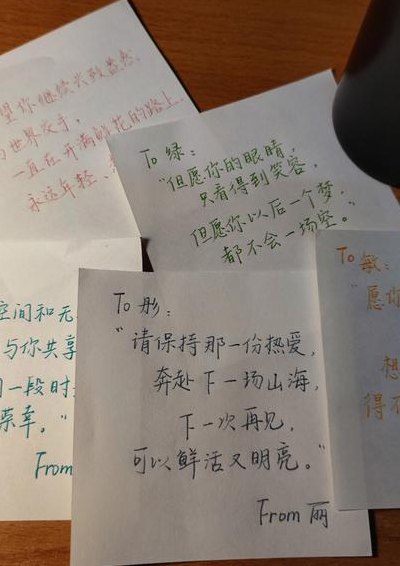 望你继续兴致盎然
与世界交手，
一直走在开满鲜花的路上
永远年轻、
To 绿：
"但愿你的眼睛，
只看得到笑容，
但愿你以后一个梦，
都不会一场空。"
To 敏：
"愿你
想
得
空间和无
与你共享
同一段时
荣幸。"
From
To 彤：
"请保持那一份热爱，
奔赴下一场山海，
下一次再见，
可以鲜活又明亮。"
From 丽